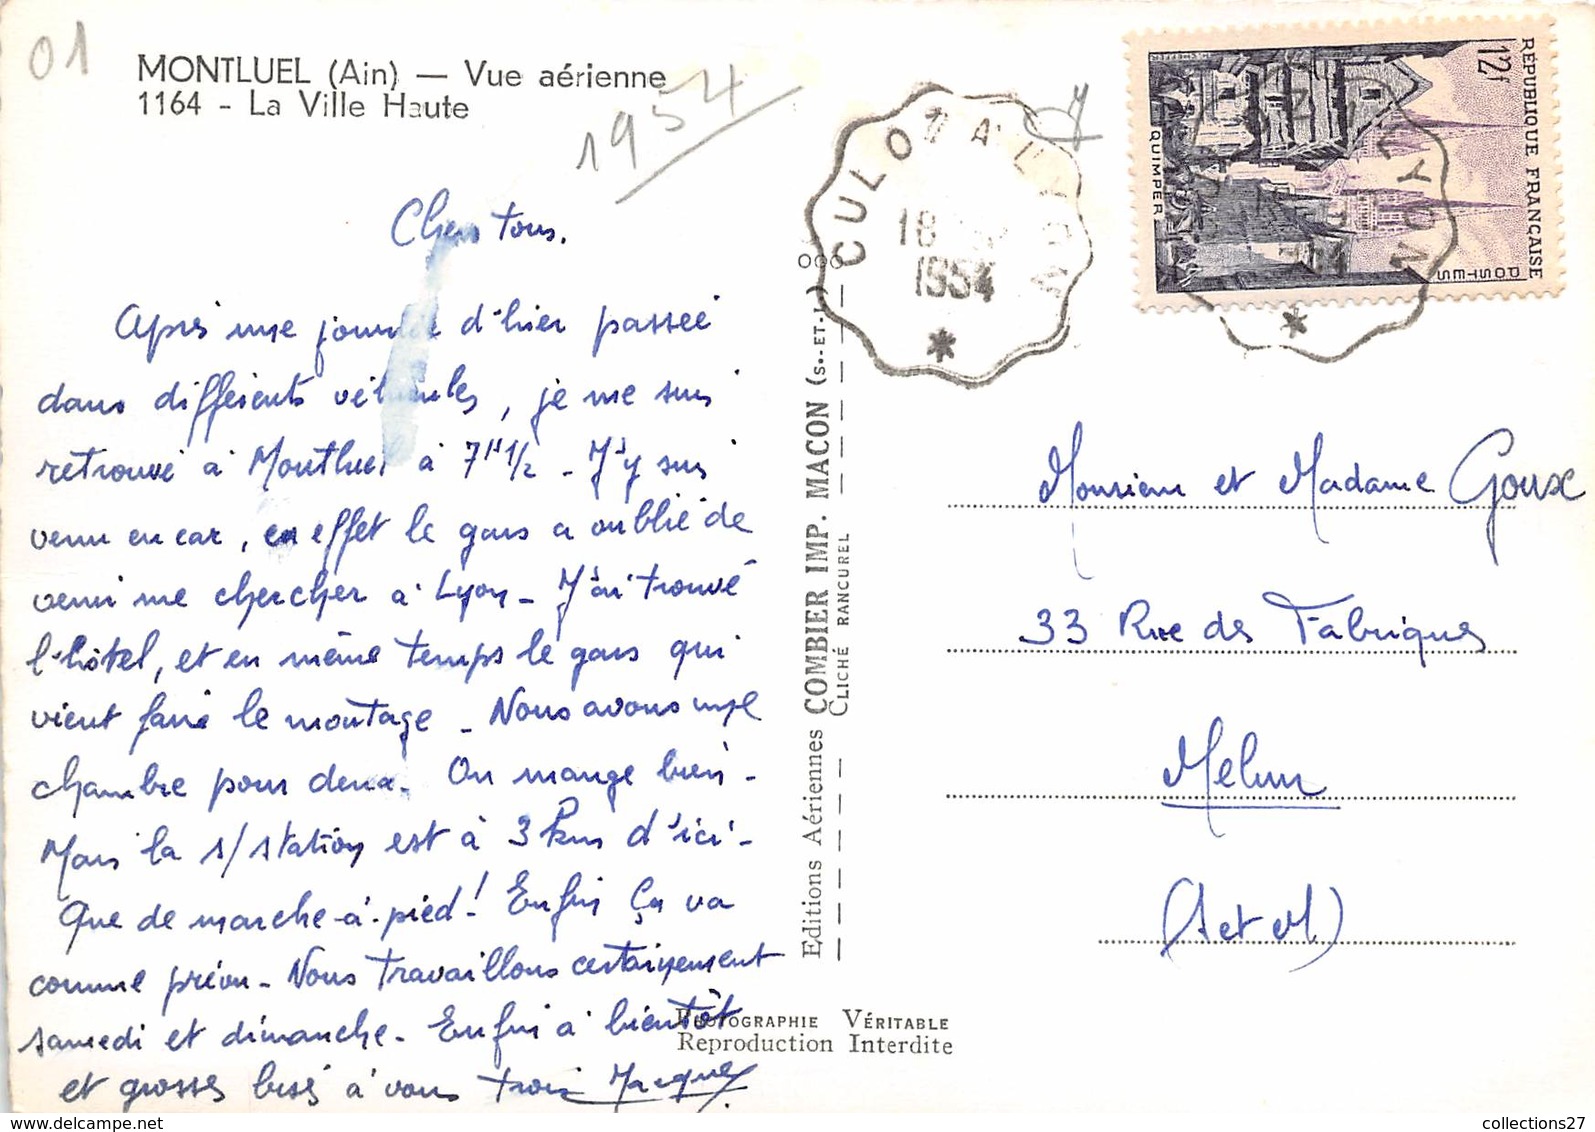 01
MONTLUEL (Ain) — Vue aérienne
1164 - La Ville Haute
1954
Chers tous.
Après une journée d'hier passée
dans différents véhicules, je me suis
retrouvé à Montluel à 7H 1/2 - J'y suis
venu en car, en effet le gars a oublié de
venir me chercher à Lyon - J'ai trouvé
l'hôtel, et en même temps le gars qui
vient faire le montage - Nous avons une
chambre pour deux. On mange bien -
Mais la s/station est à 3 km d'ici -
Que de marche à pied! Enfin ça va
comme prévu - Nous travaillons certainement
samedi et dimanche. Enfin à bientôt
et grosses bises à vous trois Jacques
Editions Aériennes COMBIER IMP. MACON (S.-ET-L.)
CLICHÉ RANCUREL
PHOTOGRAPHIE VÉRITABLE
Reproduction Interdite
CULOZ A LYON
18
1954
RÉPUBLIQUE FRANÇAISE
12f
POSTES
QUIMPER
LYON
Monsieur et Madame Goux
33 Rue des Fabriques
Melun
(S et M)
collections27